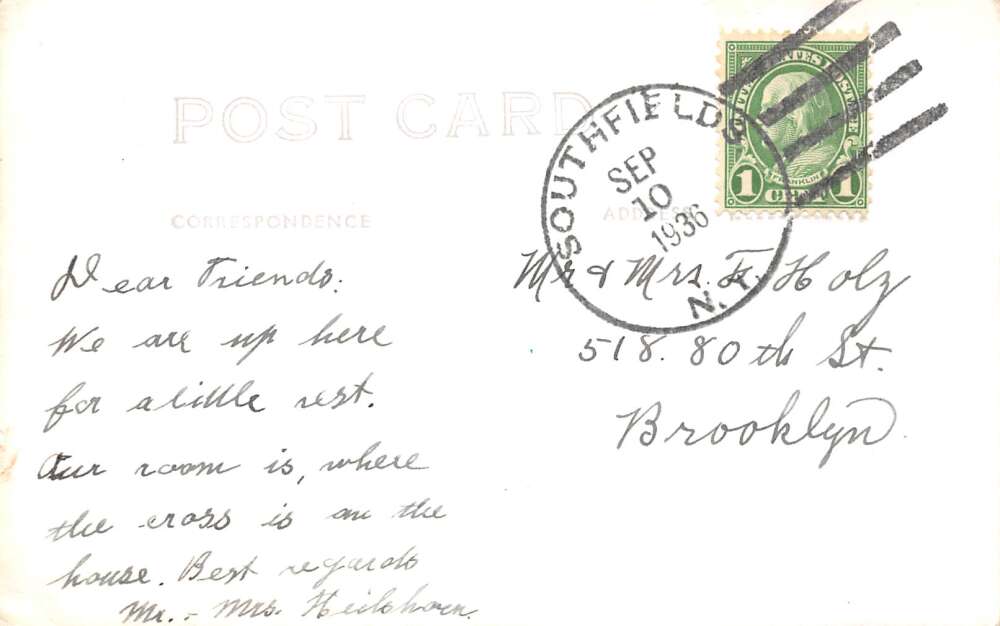 POST CARD
CORRESPONDENCE
ADDRESS
SOUTHFIELDS
SEP
10
1936
N.Y.
UNITED STATES POSTAGE
FRANKLIN
1 CENT 1
Dear Friends:
We are up here
for a little rest.
Our room is, where
the cross is on the
house. Best regards
Mr. - Mrs.
Mr & Mrs. Fr. Holz
518. 80th St.
Brooklyn